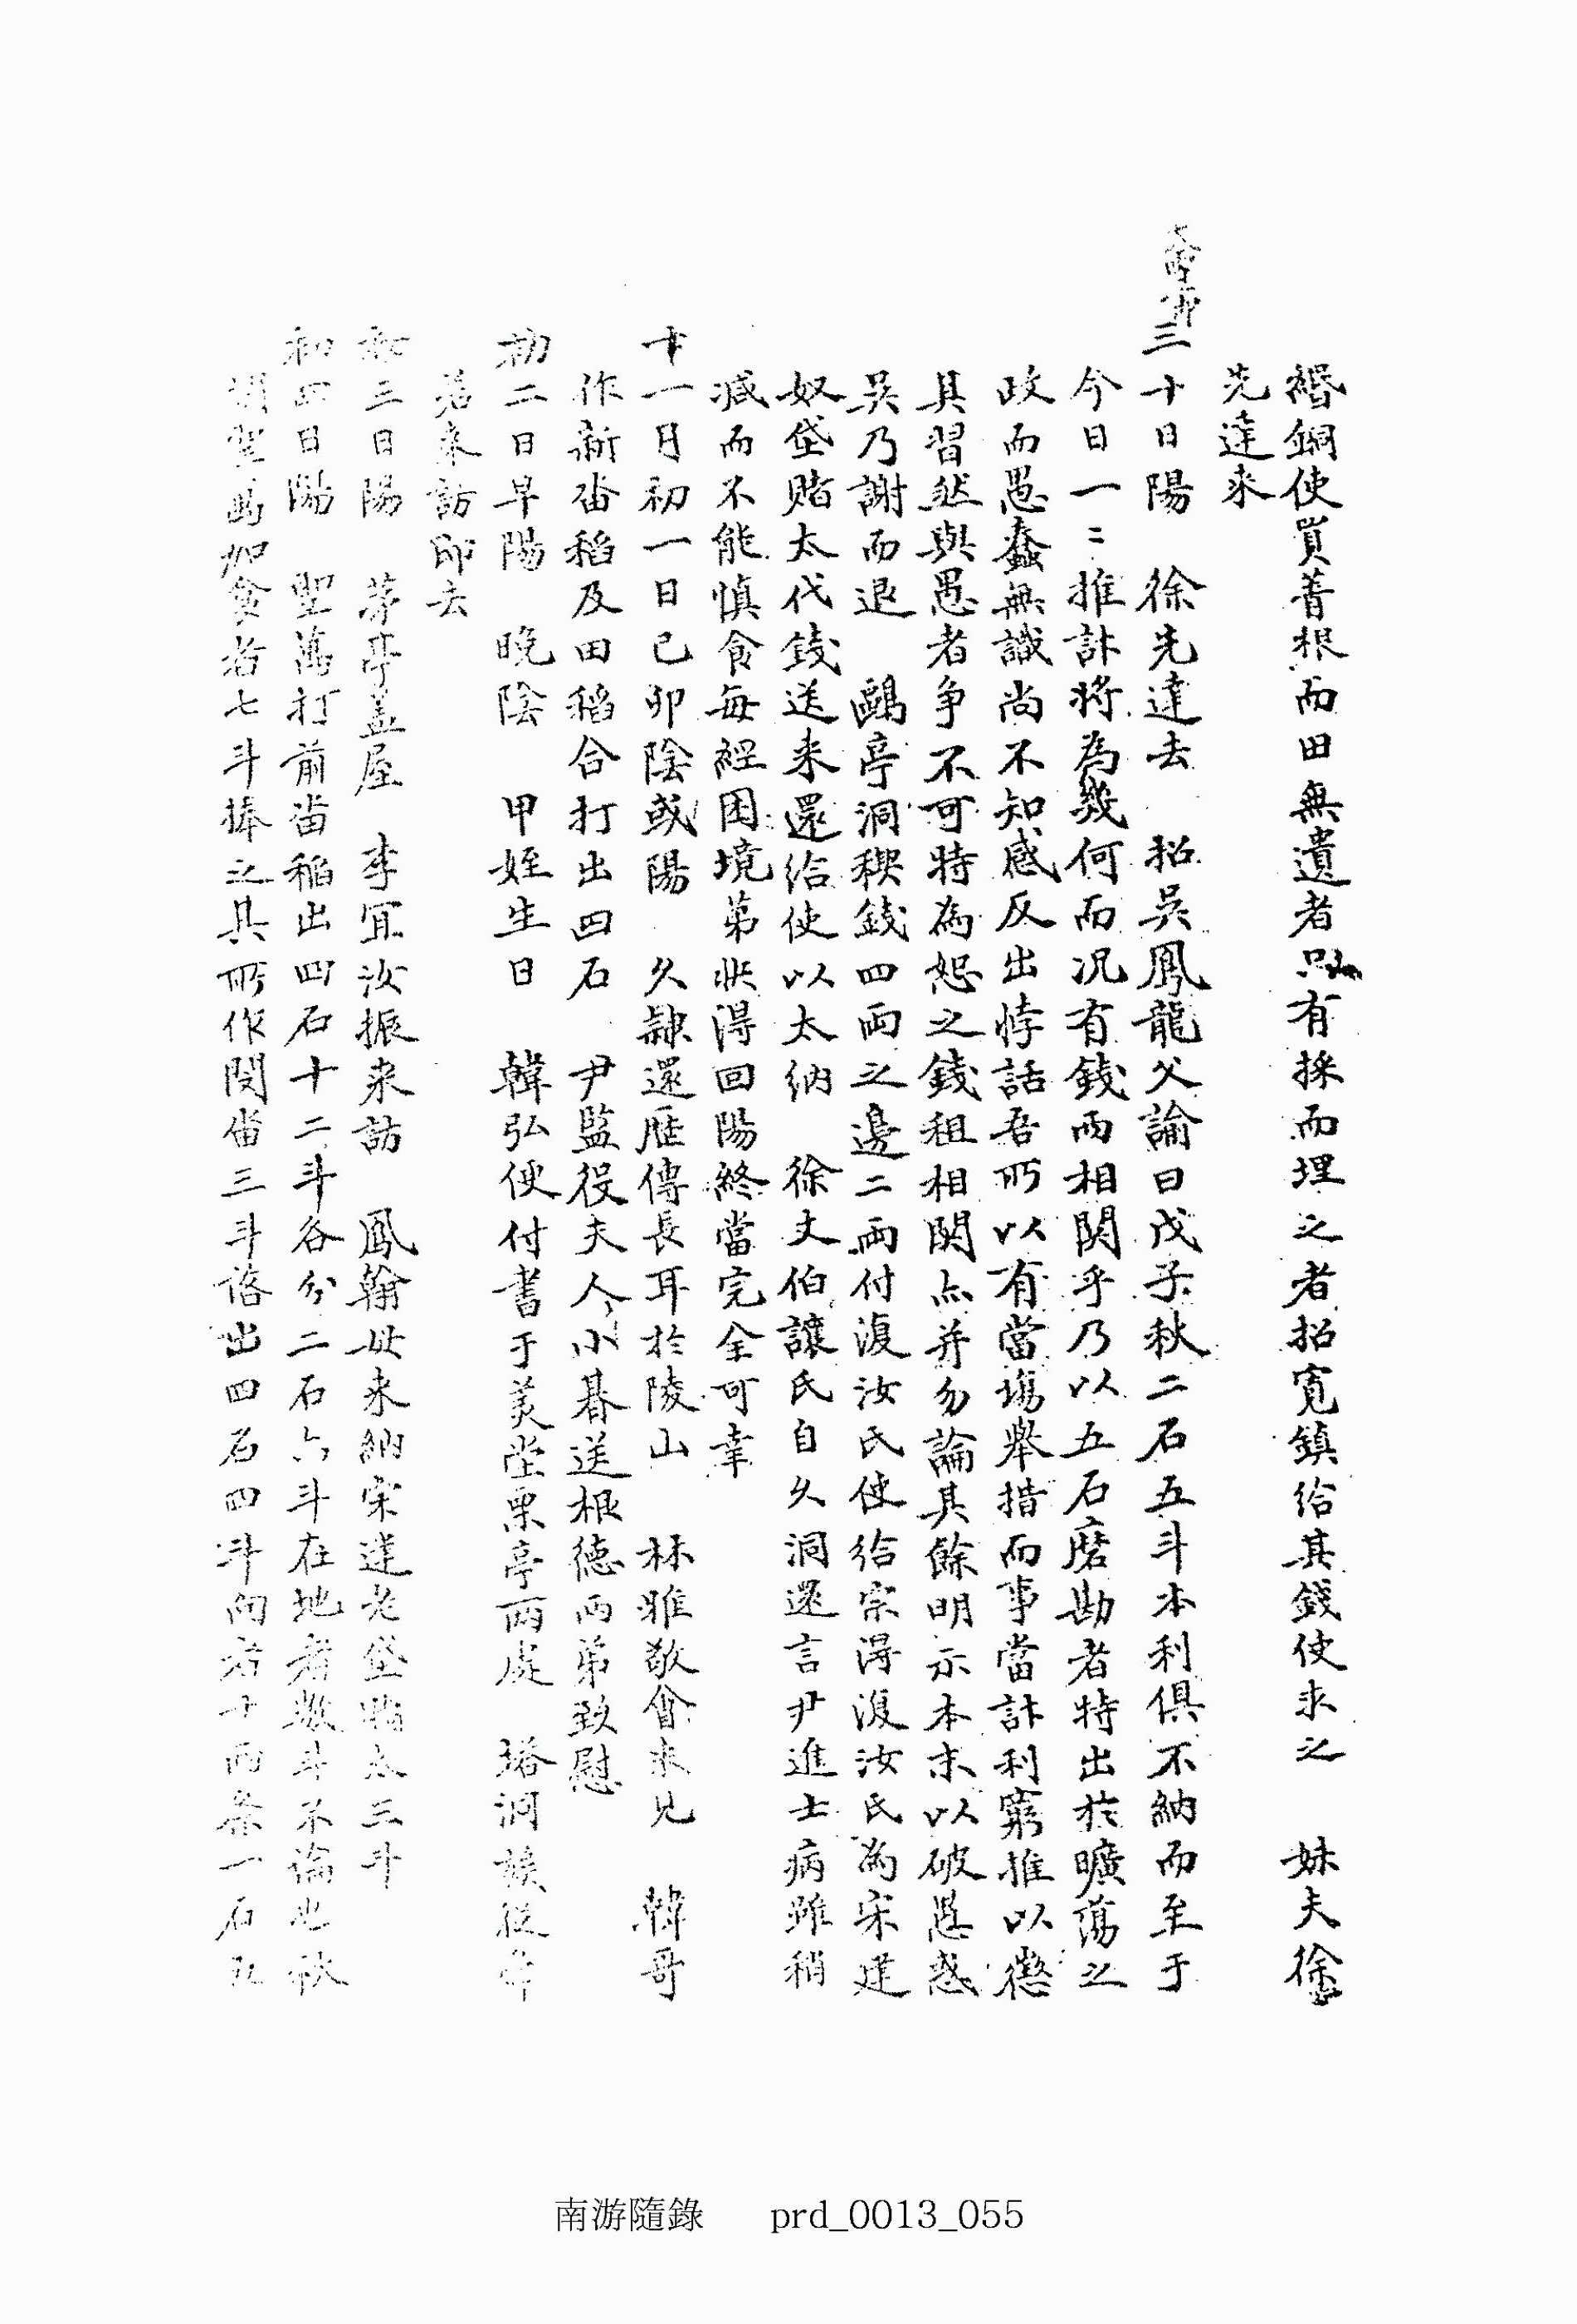 褶銅使買菩根而田無遺者只有採而埋之者招寬鎮給其錢使求之　妹夫徐
先達來
三十日陽　徐先達去　招吳鳳龍父諭曰戊子秋二石五斗本利俱不納而至于
今日一二推計將為幾何而况有錢両相関乎乃以五石磨勘者特出於曠蕩之
政而愚蠢無識尚不知感反出悖話吾所以有當塲舉措而事當計利窮推以懲
其習然與愚者争不可特為恕之錢租相関点并勿論其餘明示本末以破愚惑
吳乃謝而退　鷗亭洞稧錢四両之邊二両付復汝氏使給宗得復汝氏為宋達
奴垈賭太代錢送来還給使以太納　徐丈伯讓氏自久洞還言尹進士病雖稍
减而不能慎食每經困境第状得回陽終當完全可幸
十一月初一日己卯陰或陽　久隷還雇傳長耳於陵山　林雅敬會来見　韓哥
作新畓稻及田稻合打出四石　尹監役夫人今小朞送根德両弟致慰
初二日早陽　晚陰　甲姪生日　韓弘便付書于美堂栗亭両處　塔洞族從
若来訪即去
初三日陽　茅亭盖屋　李宜汝振来訪　鳳翰母来納宋達老垈賭太三斗
初四日陽　聖萬打前畓稻出四石十二斗各分二石六斗在地者數斗不論也秋
間聖萬加食者七斗捧之具所作閔畓三斗落出四石四斗內者十両条一石五